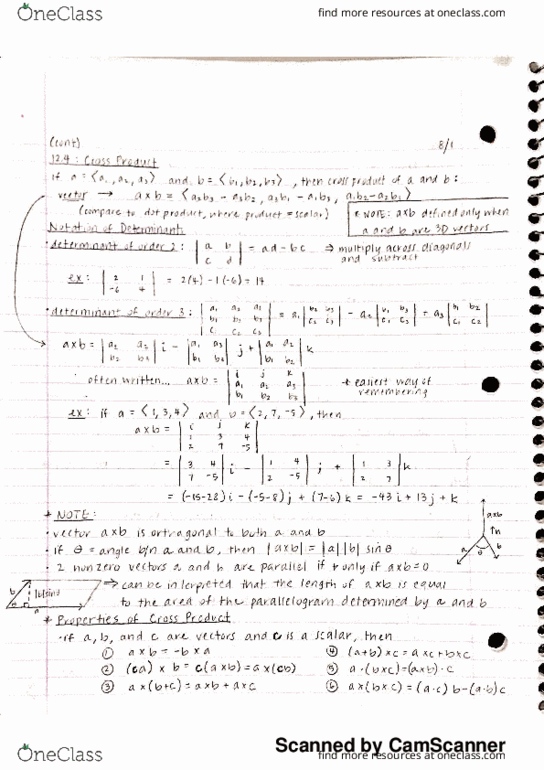 OneClass
find more resources at oneclass.com
(cont)
8/1
12.4: Cross Product
if a = ⟨a₁, a₂, a₃⟩ and b = ⟨b₁, b₂, b₃⟩, then cross product of a and b:
vector → a×b = ⟨a₂b₃ - a₃b₂, a₃b₁ - a₁b₃, a₁b₂ - a₂b₁⟩
(compare to dot product, where product = scalar)
* NOTE: a×b defined only when
a and b are 3D vectors
Notation of Determinant
· determinant of order 2: |a b; c d| = ad - bc ⇒ multiply across diagonals
and subtract
ex: |2 1; -6 4| = 2(4) - 1(-6) = 14
· determinant of order 3: |a₁ a₂ a₃; b₁ b₂ b₃; c₁ c₂ c₃| = a₁|b₂ b₃; c₂ c₃| - a₂|b₁ b₃; c₁ c₃| + a₃|b₁ b₂; c₁ c₂|
a×b = |a₂ a₃; b₂ b₃| i - |a₁ a₃; b₁ b₃| j + |a₁ a₂; b₁ b₂| k
often written... a×b = |i j k; a₁ a₂ a₃; b₁ b₂ b₃| * easiest way of
remembering
ex: if a = ⟨1, 3, 4⟩ and b = ⟨2, 7, -5⟩, then
a×b = |i j k; 1 3 4; 2 7 -5|
= |3 4; 7 -5| i - |1 4; 2 -5| j + |1 3; 2 7| k
= (-15-28) i - (-5-8) j + (7-6) k = -43 i + 13 j + k
* NOTE:
· vector a×b is ortragonal to both a and b
· if θ = angle b/n a and b, then |a×b| = |a||b| sin θ
· 2 nonzero vectors a and b are parallel if + only if a×b = 0
a×b
n
a
θ
b
b
|b|sinθ
θ
a
⇒ can be interpreted that the length of a×b is equal
to the area of the parallelogram determined by a and b
* Properties of Cross Product
· if a, b, and c are vectors and c is a scalar, then
① a×b = -b×a
④ (a+b)×c = a×c + b×c
② (ca) × b = c(a×b) = a×(cb)
⑤ a·(b×c) = (a×b)·c
③ a×(b+c) = a×b + a×c
⑥ a×(b×c) = (a·c)b - (a·b)c
Scanned by CamScanner
OneClass
find more resources at oneclass.com